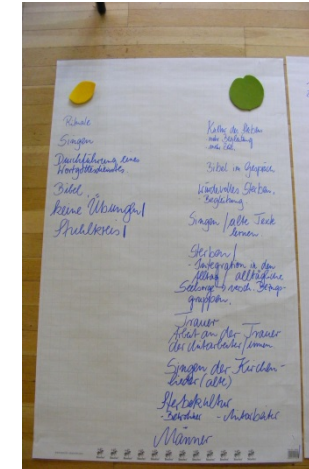 Rituale
Singen
Durchführung eines
Wortgottesdienstes.
Bibel
keine Übungen!
Stuhlkreis!
Kultur des Sterbens
Bibel im Gespräch
Würdevolles Sterben.
Begleitung
Singen / alte Texte
lernen.
Sterben /
Integration in den
Alltag / alltägliche
Seelsorge
gruppen.
Trauer
Arbeit an der Trauer
der Mitarbeiter/innen.
Singen der Kirchen-
lieder (alte)
Sterbekultur
- Bewohner - Mitarbeiter
Männer